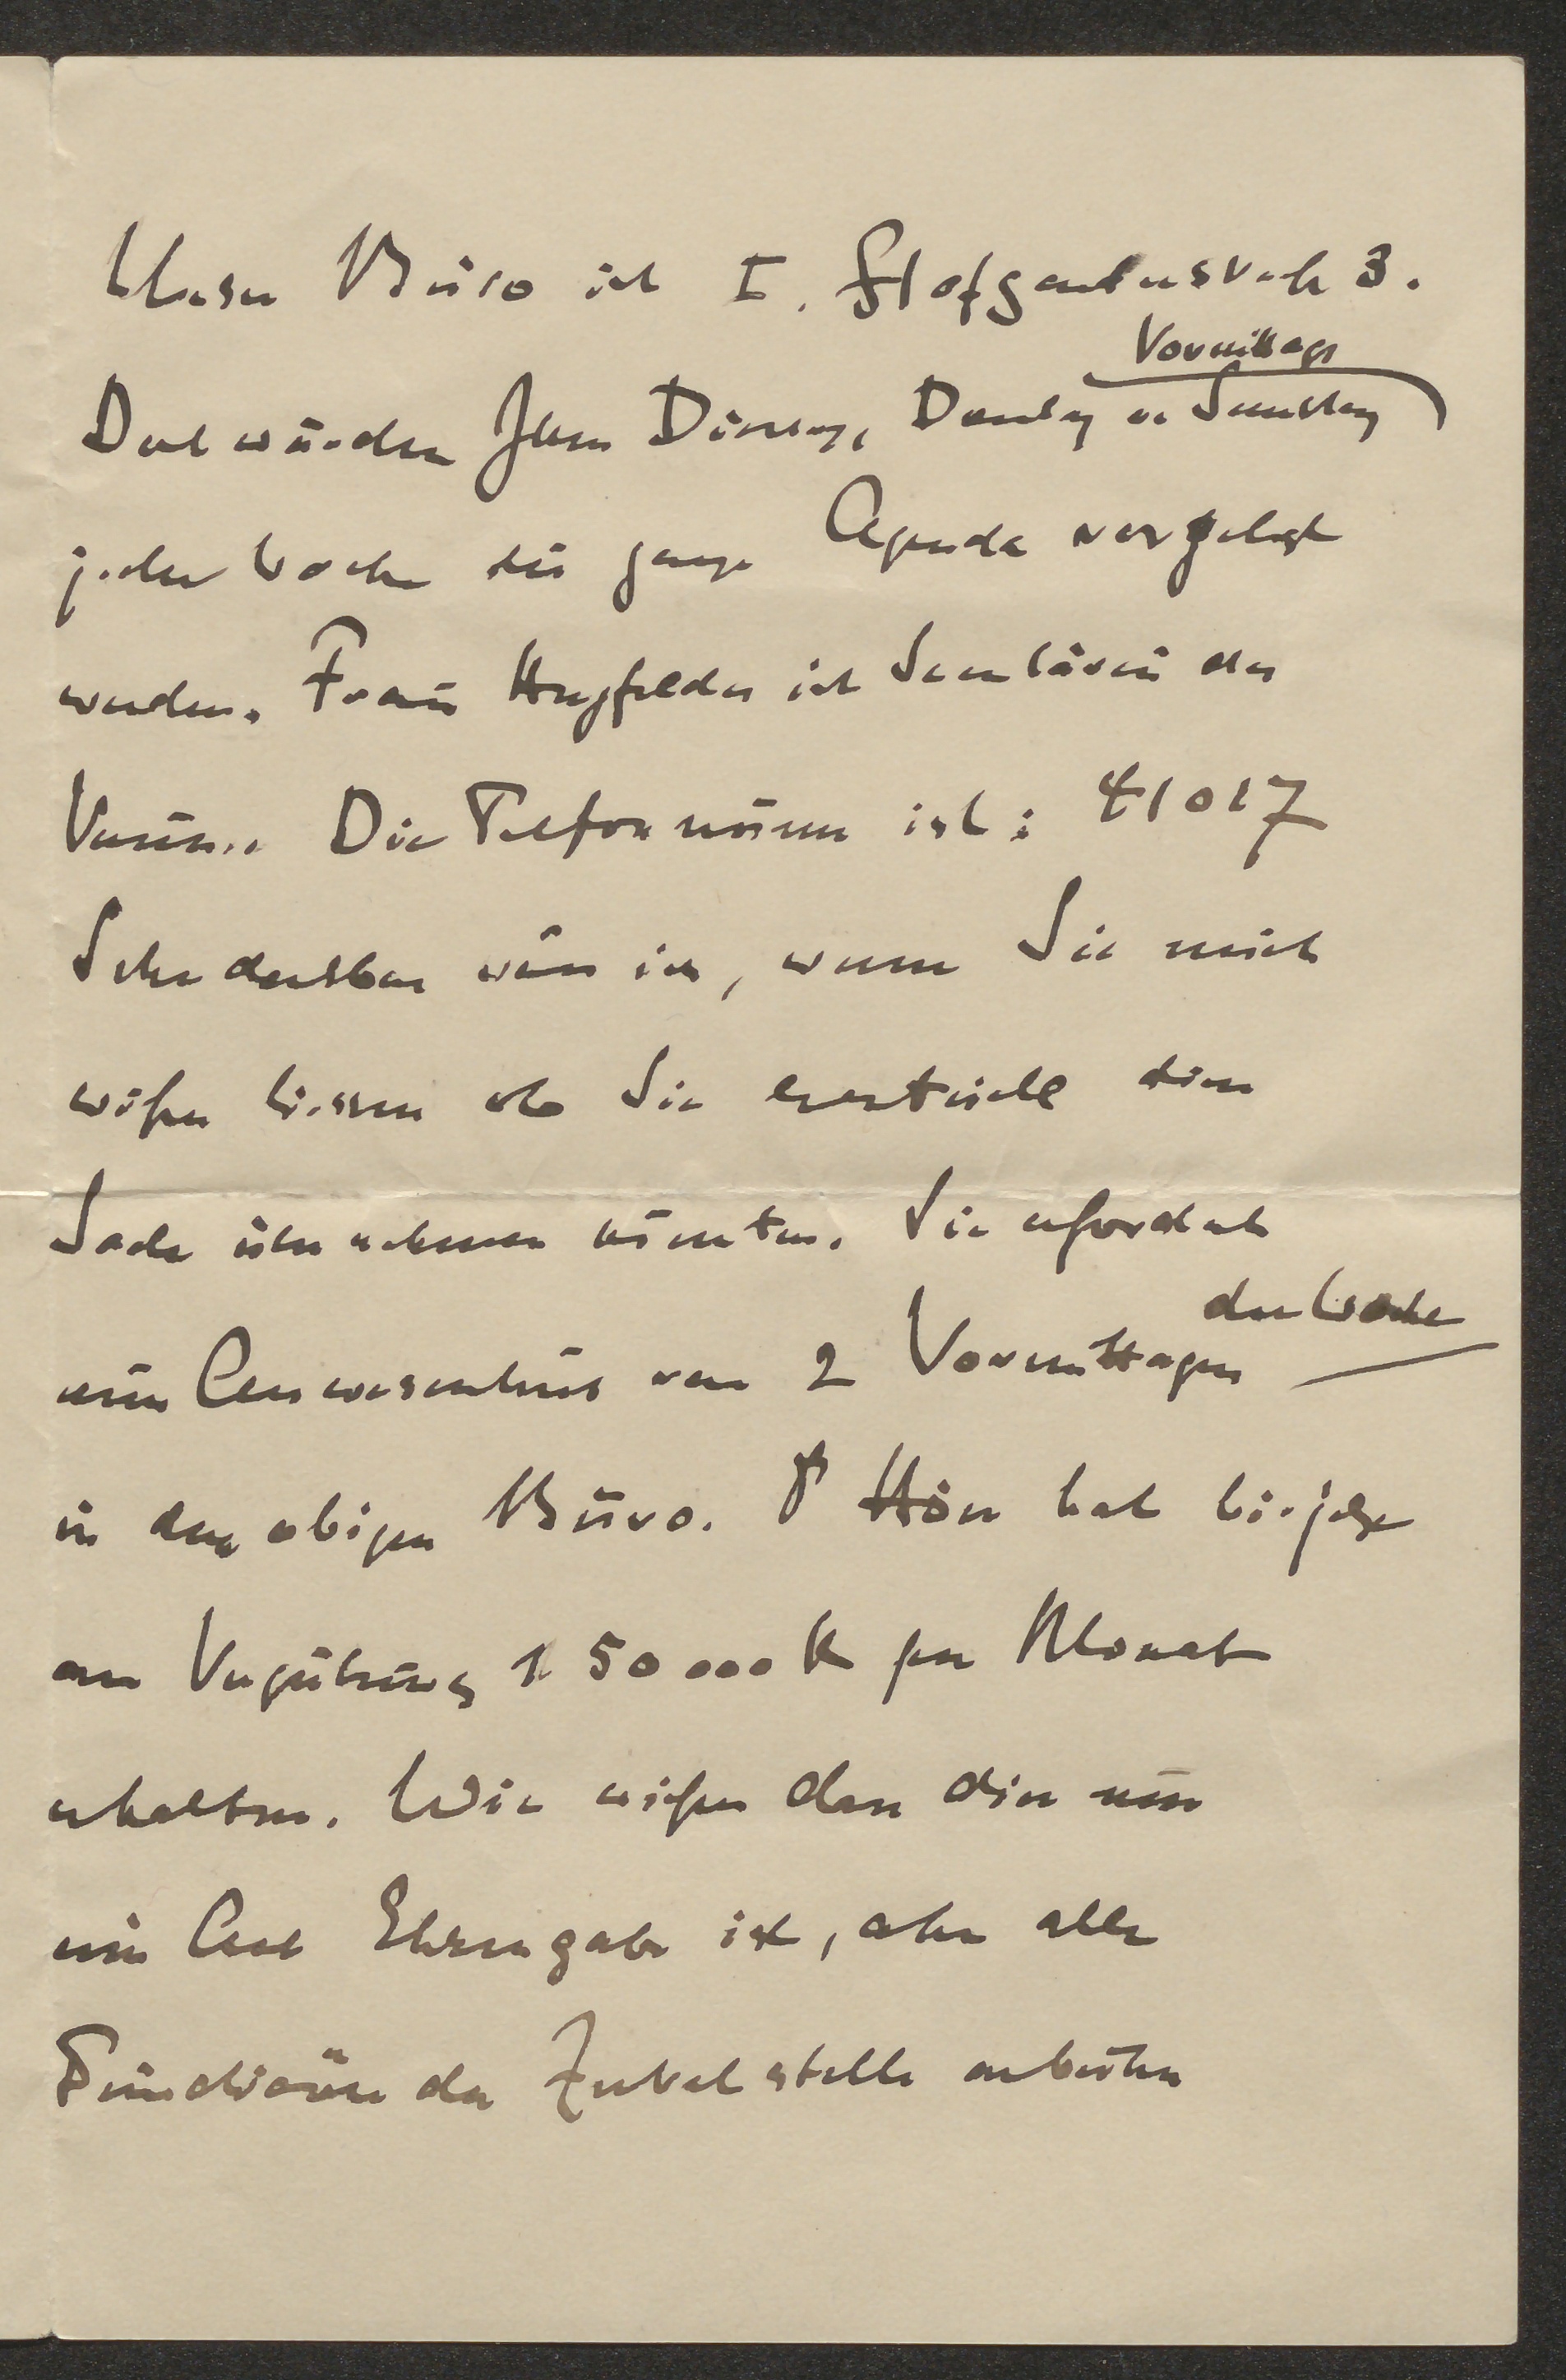 Unser Büro ist I. Stofgartenstraße 3.
Vormittags
Dort würden Ihnen Dienstag, Donnerstag u. Samstag
jeder Woche die ganze Agenda vorgelegt
werden. Frau Hupfelder ist Sekretärin des
Vereins. Die Telefonnummer ist: 41017
Sehr dankbar wäre ich, wenn Sie mich
wissen liessen ob Sie eventuell diese
Sache übernehmen könnten. Sie erfordert
der Woche
eine Anwesenheit von 2 Vormittagen
in dem obigen Büro. Hön hat bis jetzt
an Vergütung 150000 K per Monat
erhalten. Wir wissen dass dies nur
eine Art Ehrengabe ist, aber alle
Funktionäre der Zentralstelle arbeiten